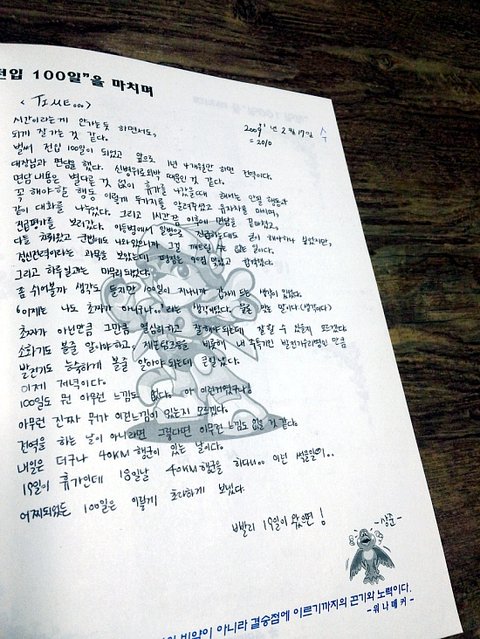 전입 100일"을 마치며
< TIME... >
2009년 2월 17일 수
= 2010
시간이라는게 안가는듯 하면서도,
되게 잘가는것 같다.
벌써 전입 100일이 되었고 앞으로 1년 4개월만 하면 전역이다.
대장님과 면담을 했다. 신병위로휴가 때문인 것 같다.
면담내용은 별다른 것 없이 휴가를 나갔을때 해서는 안될 행동과
꼭 해야할 행동 이렇게 두가지를 알려주셨고
같이 대화를 나누었다. 그리고 1시간 이후에 면담을 끝마쳤고,
진급평가를 보러갔다. 이등병에서 일병으로 진급하는데도
다들 군법에도 나와있으니까 그걸 깨뜨릴 수는 없는 일이다.
정신전력이라는 과목을 보았는데 합격했다.
그리고 하루일과는 마무리되었다.
좀 쉬어볼까 생각도 들지만 100일이 지나니까 갑자기 드는 생각이 있었다.
"이제는 나도 초짜가 아니구나.."라는 생각이었다.
초짜가 아닌만큼 그만큼 열심히하고 잘해야 되는데 잘 할 수 있을지 모르겠다.
소화기도 볼줄 알아야하고,
발전기도 능숙하게 볼줄 알아야 되는데 큰일났다.
이제 저녁이다.
100일도 뭔 아무런 느낌도 없다. 아 이런거였구나!
아무런 진짜 뭐가 이런느낌이 있는지 모르겠다.
전역을 하는 날이 아니라면 그렇다면 아무런 느낌도 없을 것 같다.
내일은 더구나 40KM 행군이 있는 날이다.
19일이 휴가인데 18일날 40KM행군을 하다니.. 이런
어찌되었든 100일은 이렇게 초라하게 보냈다.
빨리 19일이 왔으면!
-상준-
비약이 아니라 결승점에 이르기까지의 끈기와 노력이다.
- 워나메커 -